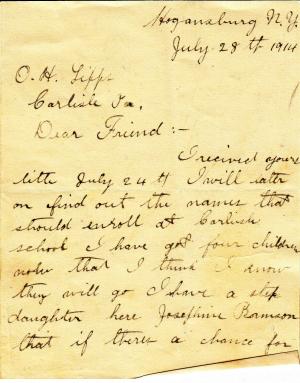 Hogansburg N.Y.
July 28th 1914
O. H. Lipps
Carlisle Pa,
Dear Friend :-
I recived your
lette July 24 th I will latter
on find out the names that
should enroll at Carlisle
school I have got four children
now that I think I know
they will go I have a step
daughter here Josephine Ramson
that if theres a chance for